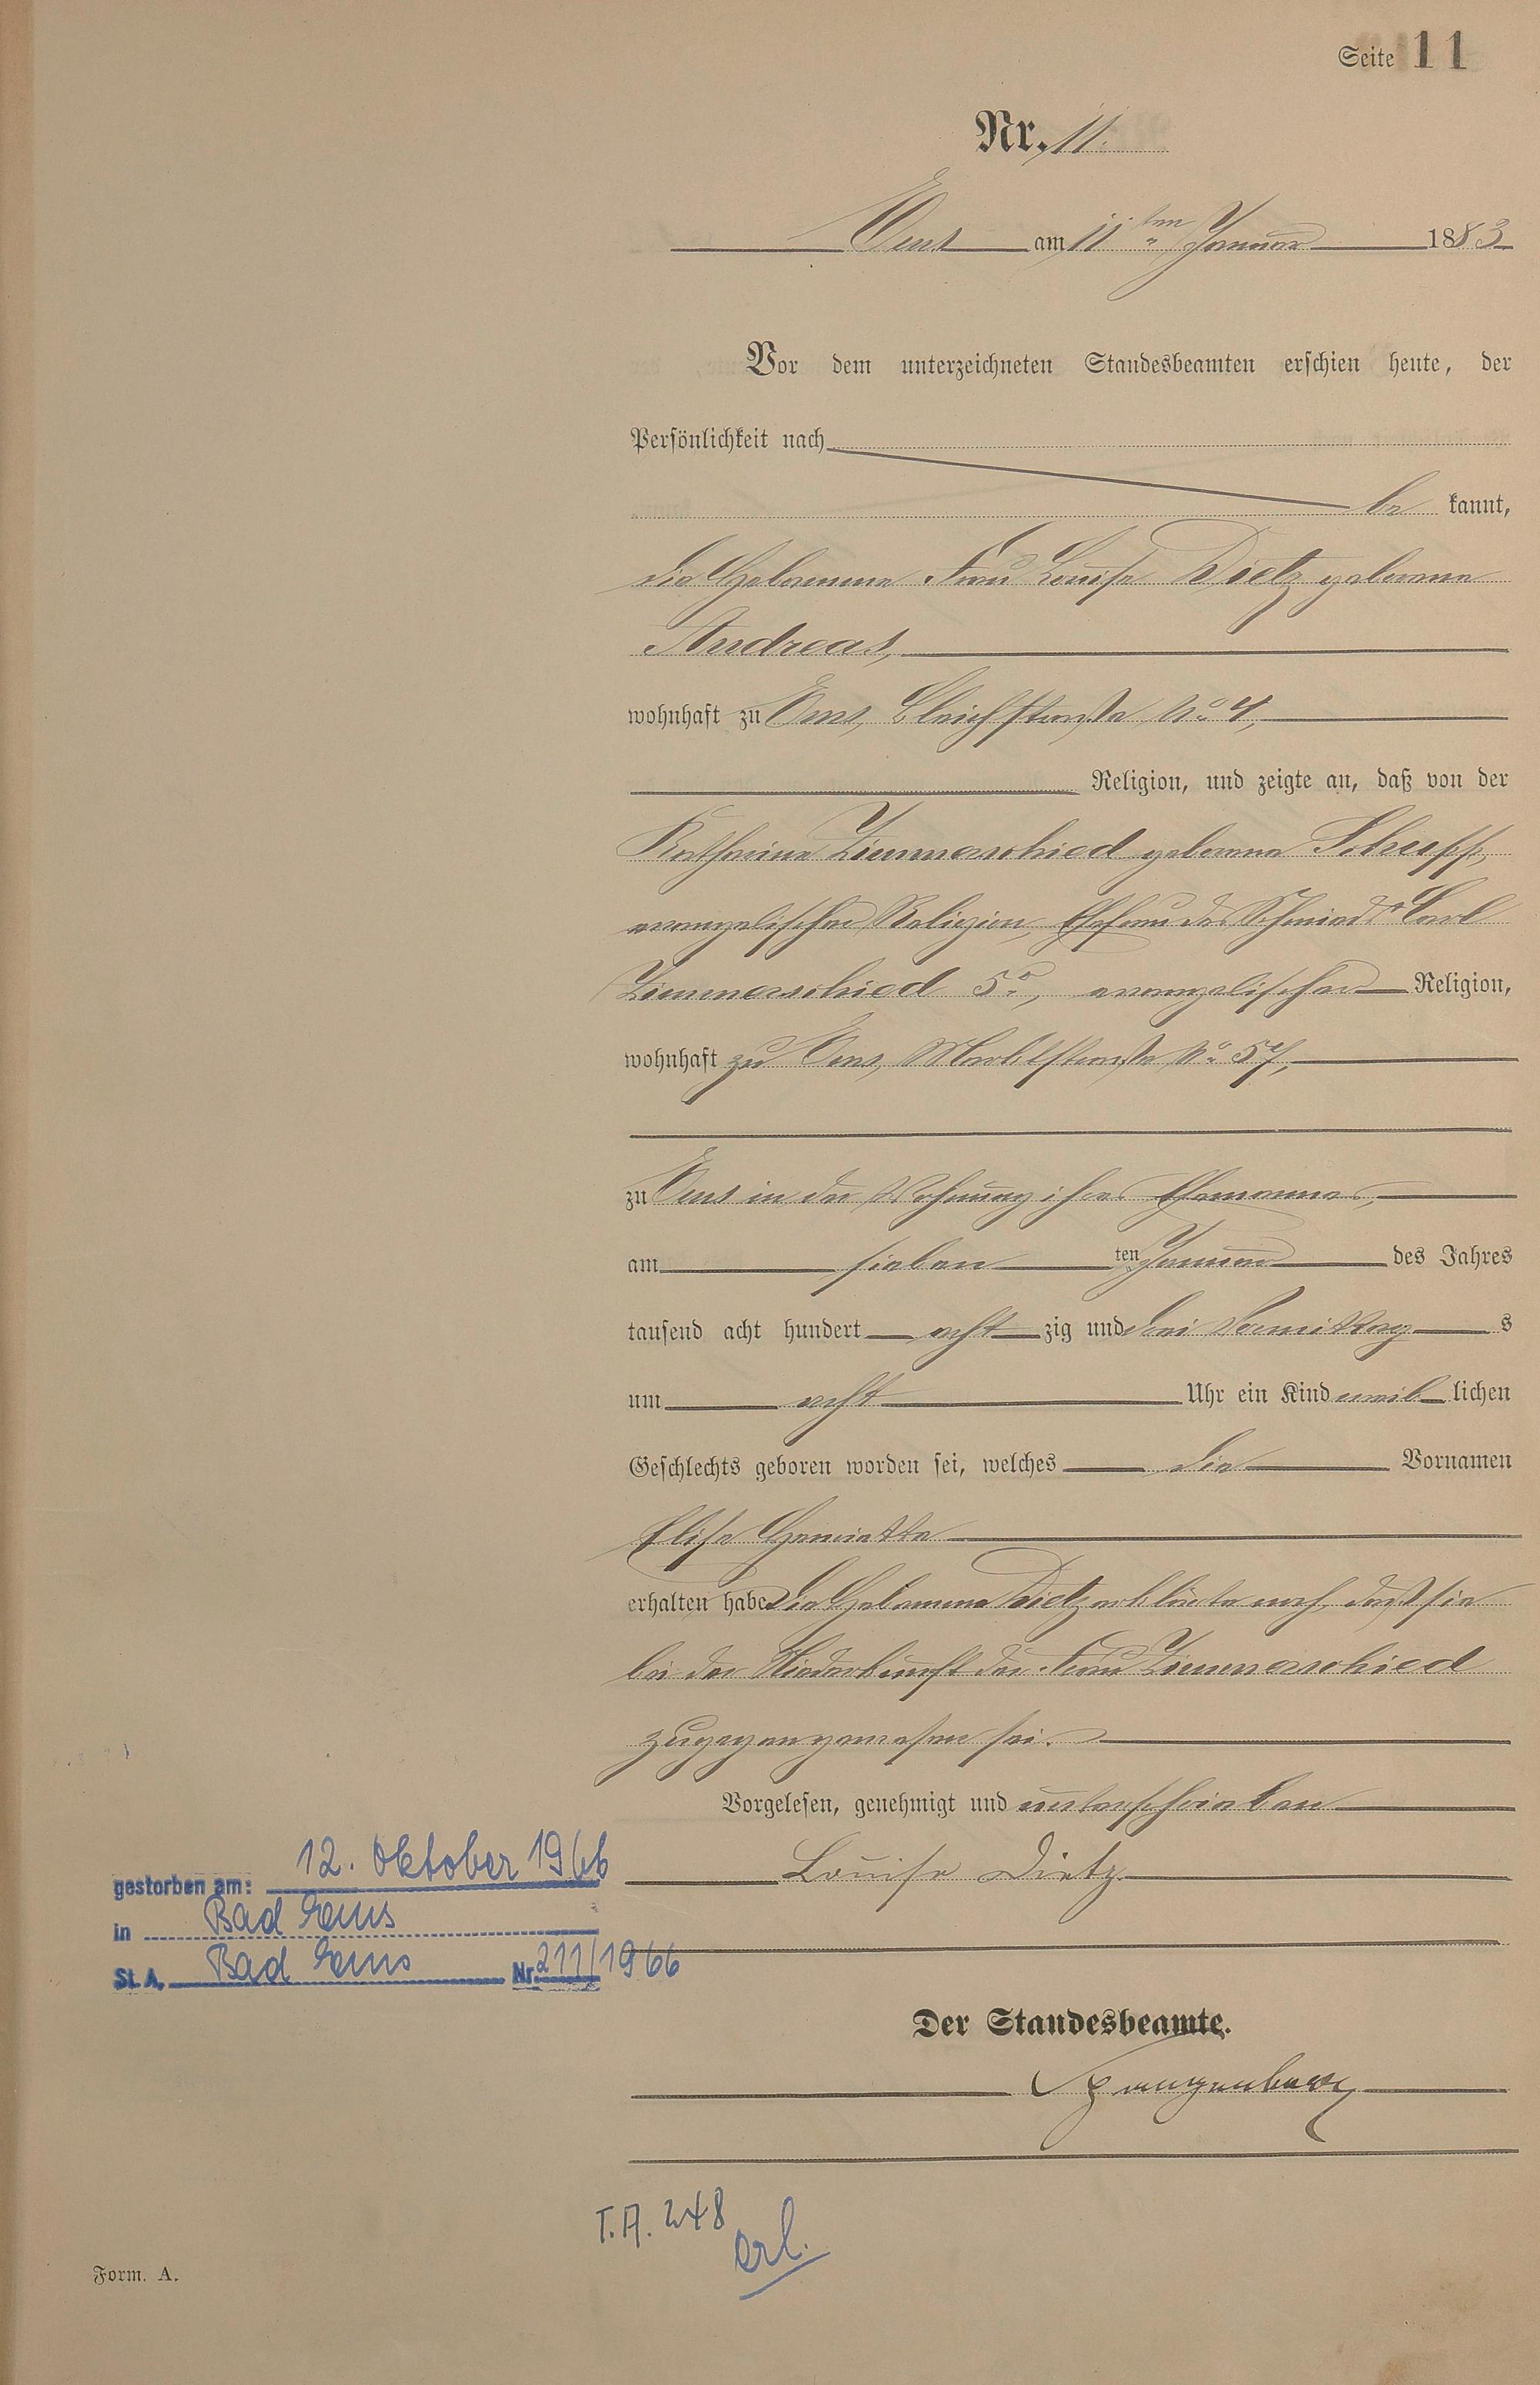 Seite 11
Nr. 11.
Ems am 11ten Januar 1883
Vor dem unterzeichneten Standesbeamten erschien heute, der
Persönlichkeit nach
be kannt,
die Hebamme Frau Louise Dietz geborene
Andreas,
wohnhaft zu Ems, Bleichstraße No 4,
Religion, und zeigte an, daß von der
Katharina Zimmerschied geborene Schupp,
evangelischer Religion, Ehefrau des Schmied Carl
Zimmerschied 5o, evangelischer Religion,
wohnhaft zu Ems, Marktstraße No 57,
zu Ems in der Wohnung ihres Ehemannes,
am sieben ten Januar des Jahres
tausend acht hundert acht zig und drei Vormittag s
um acht Uhr ein Kind weib lichen
Geschlechts geboren worden sei, welches die Vornamen
Elise Henriette
erhalten habe. Die Hebamme Dietz erklärte noch, daß sie
bei der Niederkunft der Frau Zimmerschied
zugegen gewesen sei.
Vorgelesen, genehmigt und unterschrieben
Louise Dietz
gestorben am: 12. Oktober 1966
in Bad Ems
St. A. Bad Ems Nr. 211/1966
Der Standesbeamte.
Spangenberg
T.A. 248
erl.
Form. A.